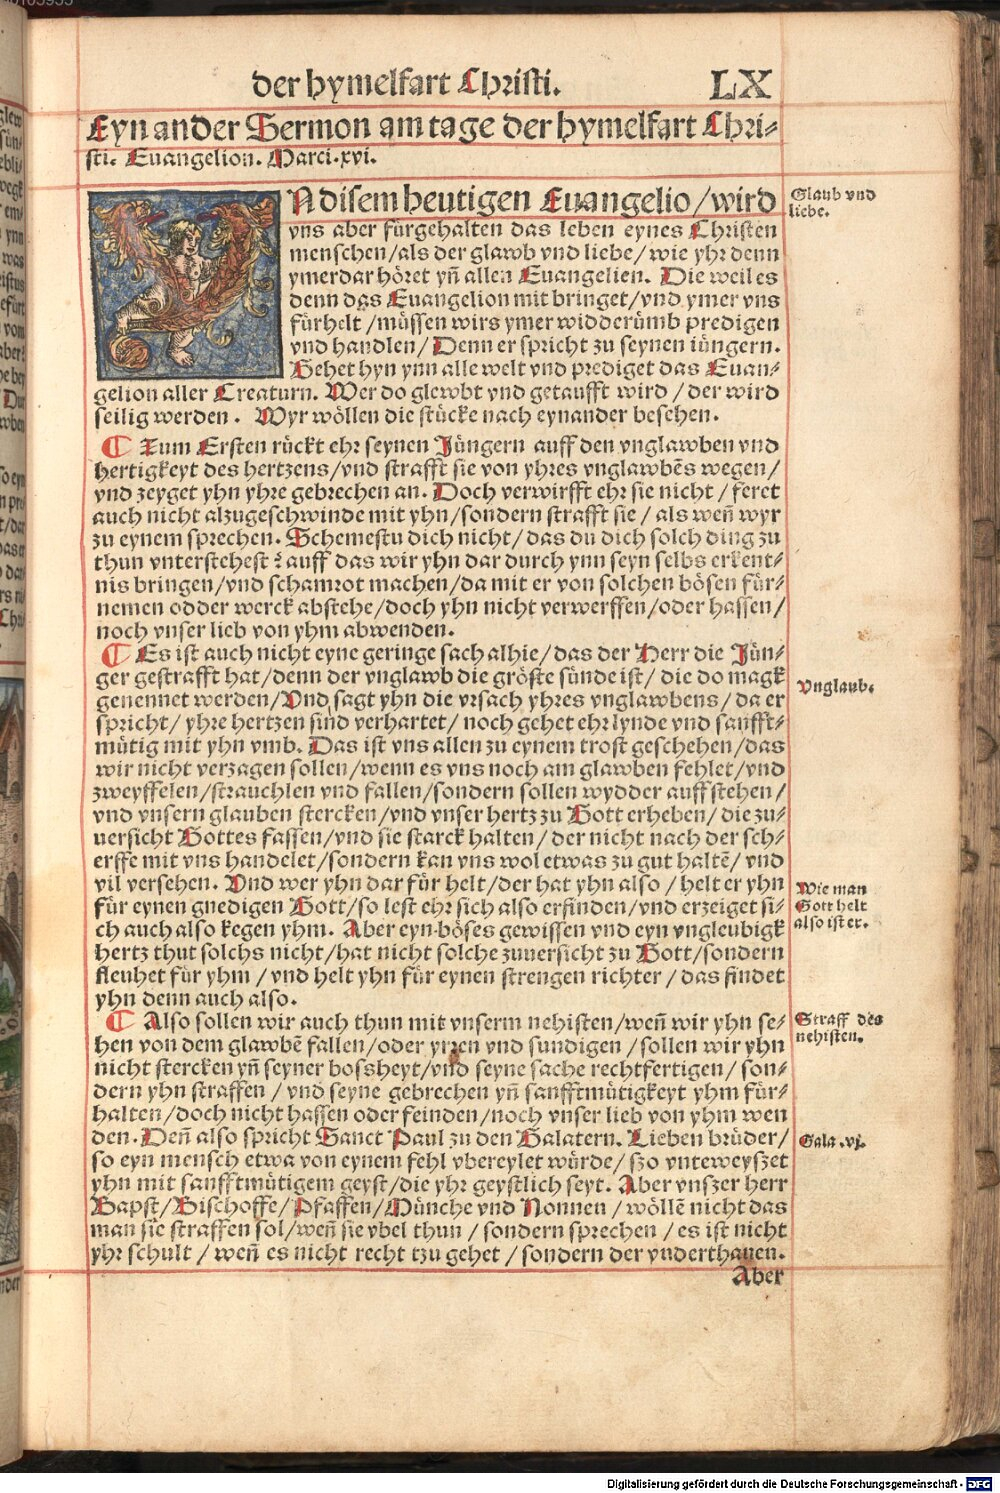 der hymelfart Christi. LX
Eyn ander Sermon am tage der hymelfart Chri-
sti. Euangelion. Marci.xvi.
Glaub vnd
liebe.
YN disem heutigen Euangelio/wird
vns aber fürgehalten das leben eynes Christen
menschen/als der glawb vnd liebe/wie yhr denn
ymerdar höret yñ allen Euangelien. Die weil es
denn das Euangelion mit bringet/vnd ymer vns
fürhelt/müssen wirs ymer widderümb predigen
vnd handlen/Denn er spricht zu seynen iüngern.
Gehet hyn ynn alle welt vnd prediget das Euan-
gelion aller Creaturn. Wer do glewbt vnd getaufft wird/der wird
seilig werden. Wyr wöllen die stücke nach eynander besehen.
¶ Zum Ersten rückt ehr seynen Jüngern auff den vnglawben vnd
hertigkeyt des hertzens/vnd strafft sie von yhres vnglawbẽs wegen/
vnd zeyget yhn yhre gebrechen an. Doch verwirfft ehr sie nicht/feret
auch nicht alzugeschwinde mit yhn/sondern strafft sie/als weñ wyr
zu eynem sprechen. Schemestu dich nicht/das du dich solch ding zu
thun vnterstehest? auff das wir yhn dar durch ynn seyn selbs erkent-
nis bringen/vnd schamrot machen/da mit er von solchen bösen für-
nemen odder werck abstehe/doch yhn nicht verwerffen/oder hassen/
noch vnser lieb von yhm abwenden.
¶ Es ist auch nicht eyne geringe sach alhie/das der Herr die Jün-
ger gestrafft hat/denn der vnglawb die gröste sünde ist/die do magk
genennet werden/Vnd sagt yhn die vrsach yhres vnglawbens/da er
spricht/yhre hertzen sind verhartet/noch gehet ehr lynde vnd sanfft-
mütig mit yhn vmb. Das ist vns allen zu eynem trost geschehen/das
wir nicht verzagen sollen/wenn es vns noch am glawben fehlet/vnd
zweyffelen/strauchlen vnd fallen/sondern sollen wydder auff stehen/
vnd vnsern glauben stercken/vnd vnser hertz zu Gott erheben/die zu-
uersicht Gottes fassen/vnd sie starck halten/der nicht nach der sch-
erffe mit vns handelet/sondern kan vns wol etwas zu gut haltẽ/vnd
vil versehen. Vnd wer yhn dar für helt/der hat yhn also/helt er yhn
für eynen gnedigen Gott/so lest ehr sich also erfinden/vnd erzeiget si-
ch auch also kegen yhm. Aber eyn böses gewissen vnd eyn vngleubigk
hertz thut solchs nicht/hat nicht solche zuuersicht zu Gott/sondern
fleuhet für yhm/vnd helt yhn für eynen strengen richter/das findet
yhn denn auch also.
Vnglaub.
Wie man
Gott helt
also ist er.
¶ Also sollen wir auch thun mit vnserm nehisten/weñ wir yhn se-
hen von dem glawbẽ fallen/oder yrren vnd sundigen/sollen wir yhn
nicht stercken yñ seyner bossheyt/vnd seyne sache rechtfertigen/son-
dern yhn straffen/vnd seyne gebrechen yñ sanfftmütigkeyt yhm für-
halten/doch nicht hassen oder feinden/noch vnser lieb von yhm wen
den. Deñ also spricht Sanct Paul zu den Galatern. Lieben brüder/
so eyn mensch etwa von eynem fehl vbereylet würde/szo vnteweyszet
yhn mit sanfftmütigem geyst/die yhr geystlich seyt. Aber vnszer herr
Bapst/Bischoffe/Pfaffen/Münche vnd Nonnen/wöllẽ nicht das
man sie straffen sol/weñ sie vbel thun/sondern sprechen/es ist nicht
yhr schult/weñ es nicht recht tzu gehet/sondern der vnderthanen.
Straff des
nehisten.
Gala.vj.
Aber
Digitalisierung gefördert durch die Deutsche Forschungsgemeinschaft - DFG